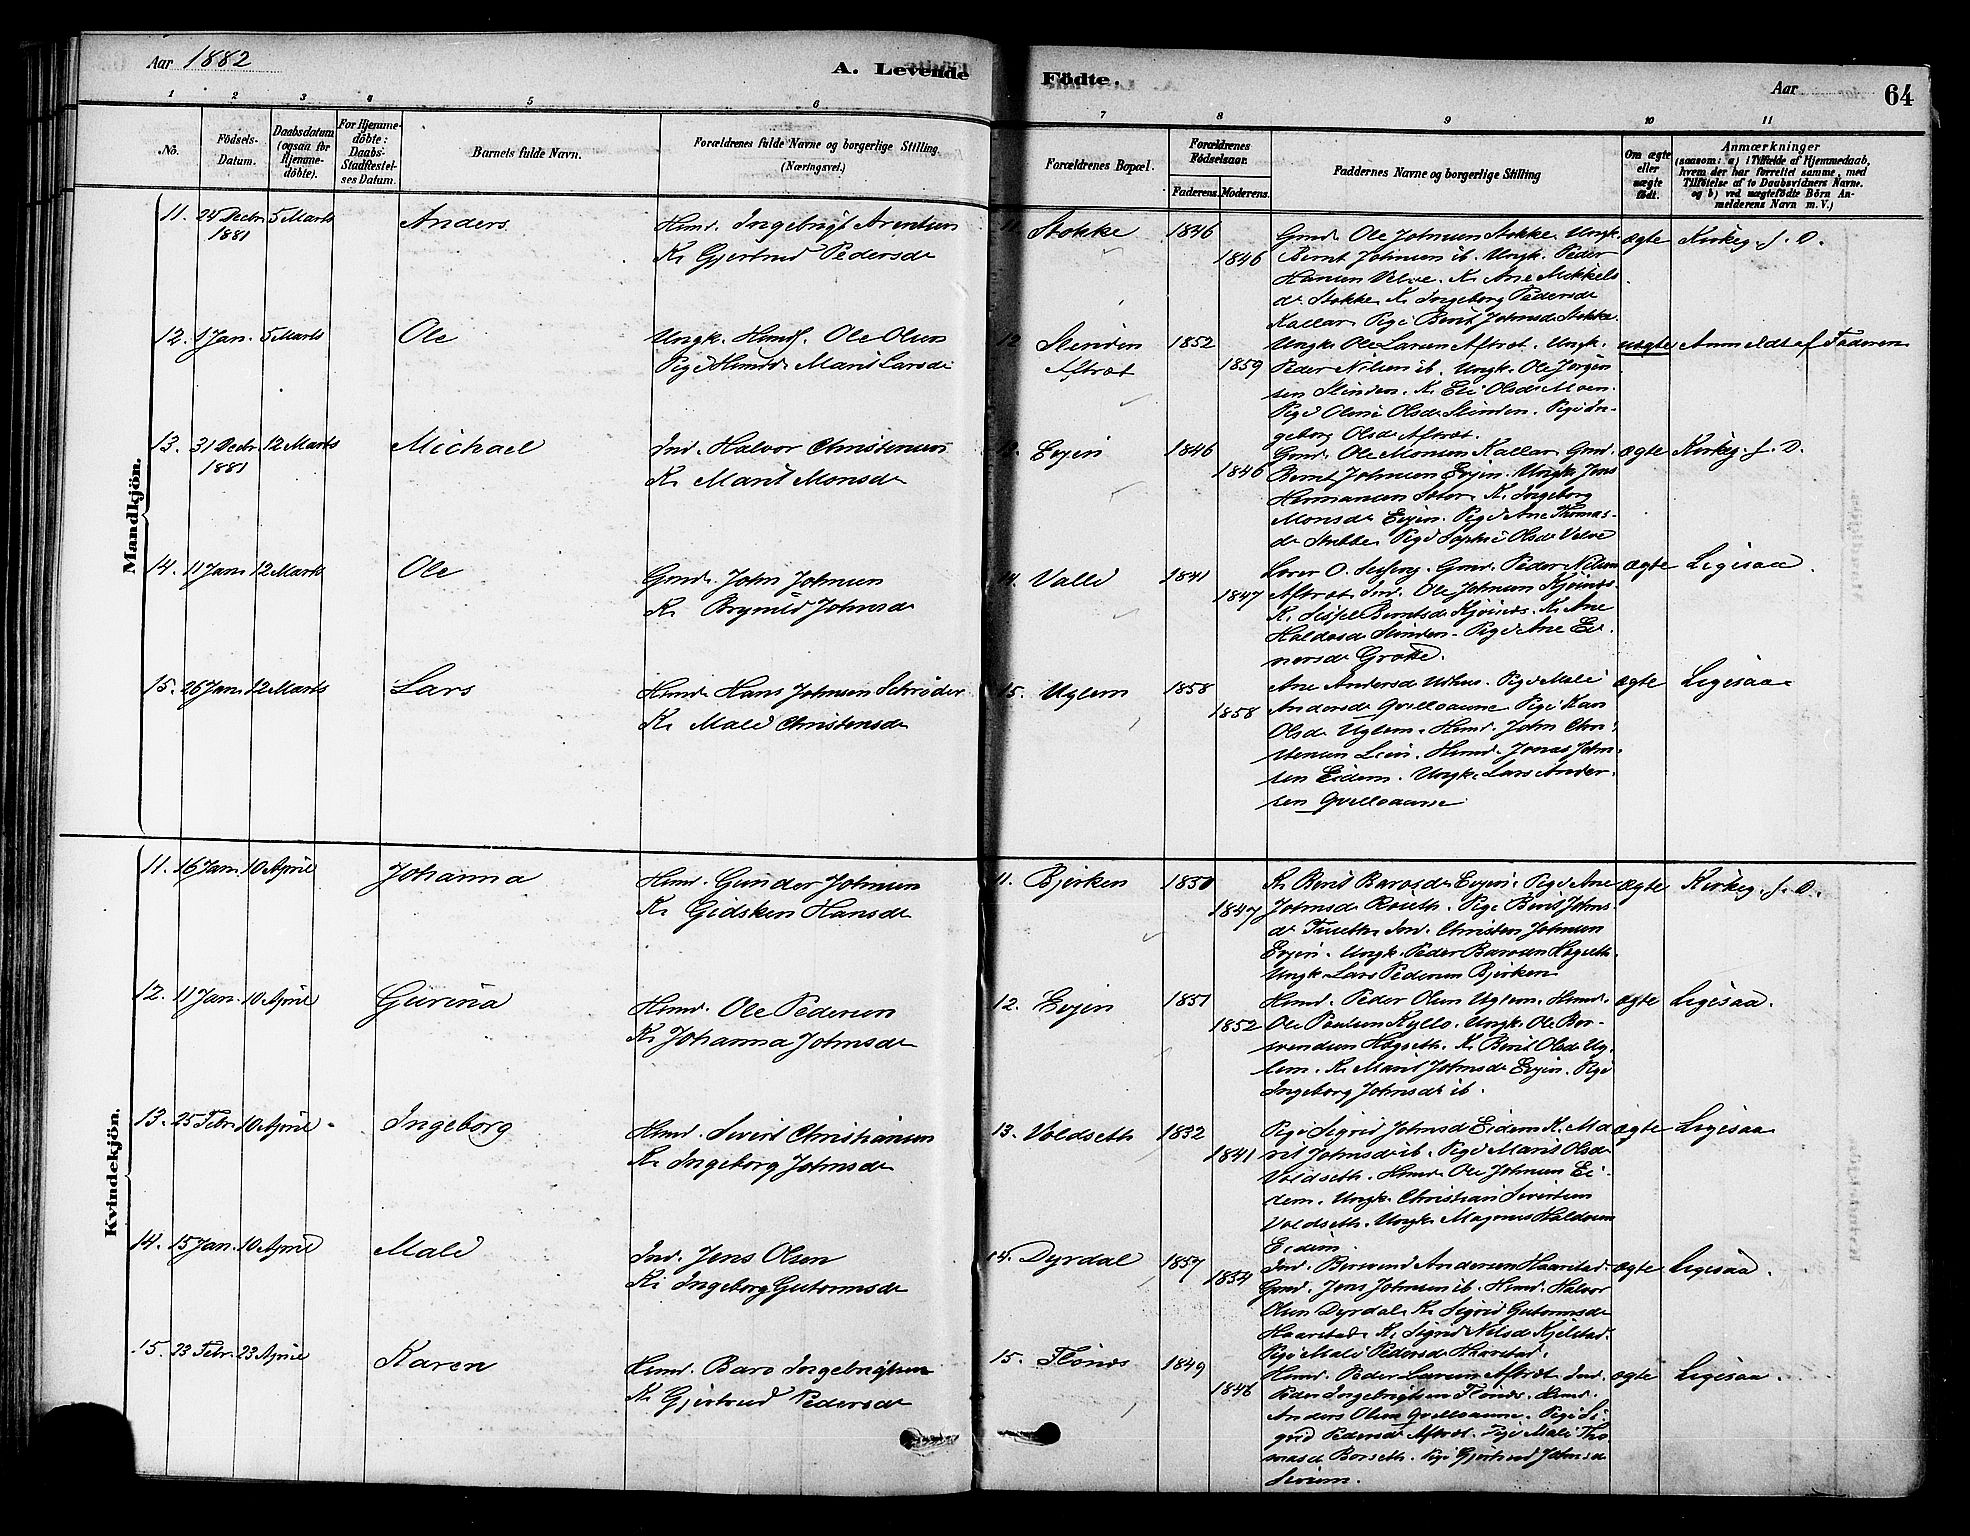 Aar 1882
A. Levende
Fødte.
Aar
64
1 2 3 4 5 6 7 8 9 10 11
No.
Födsels-Datum.
Daabsdatum (ogsaa for Hjemmedöbte).
For Hjemmedöbte: Daabs-Stadfæstelses Datum.
Barnets fulde Navn.
Forældrenes fulde Navne og borgerlige Stilling. (Næringsvei.)
Forældrenes Bopæl.
Forældrenes Födselsaar.
Faderens. Moderens.
Faddernes Navne og borgerlige Stilling
Om ægte eller uægte födt.
Anmærkninger
(saasom: a) i Tilfælde af Hjemmedaab,
hvem der har forrettet samme, med
Tilföielse af to Daabsvidners Navne.
og b) ved uægtefödte Börn Anmelderens Navn m. V.)
Mandkjön.
11. 24 Decbr. 1881 5 Marts Anders
Husmd. Ingebrigt Arentsen
K. Gjertrud Pedersdr
11. Stokke 1846 1846
Gmd. Ole Johnsen Stokke. Ungk.
Bernt Johnsen ib. Ungk. Peder
Hansen Velve. K. Ane Mikkels
dr Stokke K. Ingeborg Pedersdr
Kallar. Pige Berit Johnsdr Stokke.
ægte Kirkeg. f. D.
12. 1 Jan. 5 Marts Ole
Ungk. Husmd. Ole Olsen
Pige Marit Larsdr
12. Slinden Aftret 1852 1859
Ungk. Ole Larsen Aftret. Ungk.
Peder Nilsen ib. Ungk. Ole Jörgen
sen Slinden. K. Eli Olsdr Moen.
Pige Oline Olsdr Slinden. Pige In-
geborg Olsdr Aftret.
uægte Anmeldt af Faderen
13. 31 Decbr. 1881 12 Marts Michael
Ind. Halvor Christensen
K. Marit Monsdr
13. Evjen 1846 1846
Gmd. Ole Monsen Kallar. Gmd.
Bernt Johnsen Evjen. Ungk. Jens
Hermansen Seter. K. Ingeborg
Monsdr Evjen. Pige Ane Thomas-
dr Stubbe. Pige Sophie Olsdr Velve
ægte Kirkeg. f. D.
14. 11 Jan. 12 Marts Ole
Gmd. John Johnsen
K. Brynild Johnsdr
14. Valli 1841 1847
Lærer O. Gmd. Peder Nilsen
Aftret. Ind. Ole Johnsen
K. Sissel Berntsdr K. Ane
Haldosdr Slinden. Pige Ane Ei-
nersdr Grötte.
ægte Ligesaa.
15. 26 Jan. 12 Marts Lars
Husmd. Hans Johnsen Schröder
K. Mali Christensdr
15. Uglem 1858 1858
Ane Andersdr Udhus. Pige Mali
Andersdr Qvelloaune Pige Kari
Olsdr Uglem. Husmd. John Chri
stensen Lien. Husmd. Jonas John-
sen Eidem. Ungk. Lars Ander-
sen Qvelloaune.
ægte Ligesaa
Kvindekjön.
11. 16 Jan. 10 April Johanna
Husmd. Gunder Johnsen
K. Gidsken Hansdr
11. Bjerken 1850 1847
K. Berit Barosdr Evjen. Pige Ane
Johnsdr Roseth. Pige Berit Johns-
dr Tuseth. Ind. Christen Johnsen
Evjen. Ungk. Peder Barosen Hogseth.
Ungk. Lars Pedersen Bjerken
ægte Kirkeg. f. D.
12. 11 Jan. 10 April Gurina
Husmd. Ole Pedersen
K. Johanna Johnsdr
12. Evjen 1851 1852
Husmd. Peder Olsen Uglem. Husmd.
Ole Paulsen Kyllo. Ungk. Ole Ber-
svendsen Hogseth. K. Berit Olsdr Ug-
lem. K. Marit Johnsdr Evjen. Pige
Ingeborg Johnsdr ib.
ægte Ligesaa.
13. 25 Febr. 10 April Ingeborg
Husmd. Sivert Christiansen
K. Ingeborg Johnsdr
13. Voldseth 1832 1841
Pige Sigrid Johnsdr Eidem K. Ma
rit Johnsdr ib. Pige Marit Olsdr
Voldseth. Husmd. Ole Johnsen Ei-
dem. Ungk. Christian Sivertsen
Voldseth. Ungk. Magnus Haldosen
Eidem.
ægte Ligesaa
14. 15 Jan. 10 April Mali
Ind. Jens Olsen
K. Ingeborg Gutormsdr
14. Dyrdal 1857 1854
Ind. Bersvend Andersen Haarstad.
Gmd. Jens Johnsen ib. Husmd. Halvor
Olsen Dyrdal. K. Sigrid Gutormsdr
Haarstad. K. Sigrid Nilsdr Kjelstad.
Pige Mali Pedersdr Haarstad.
ægte Ligesaa.
15. 23 Febr. 23 April Karen
Husmd. Baro Ingebrigtsen
K. Gjertrud Pedersdr
15. Flönes 1849 1846
Husmd. Peder Larsen Aftret. Ind.
Peder Ingebrigtsen Flönes. Husmd.
Anders Olsen Qvelloaune. Pige Si-
grid Pedersdr Aftret. Pige Mali Tho
masdr Borseth. Pige Gjertrud Johnsdr
ægte Ligesaa.